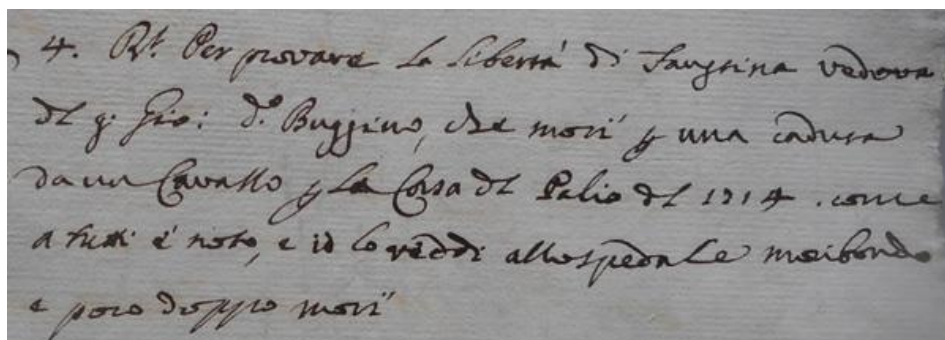 4. Rt. Per provare la libertà di Faustina vedova
del q. Gio: do. Buggino, che morì p una caduta
da un Cavallo p la Corsa del Palio del 1714. come
a tutti è noto, e io lo veddi allospedale moribondo
e poco doppo morì